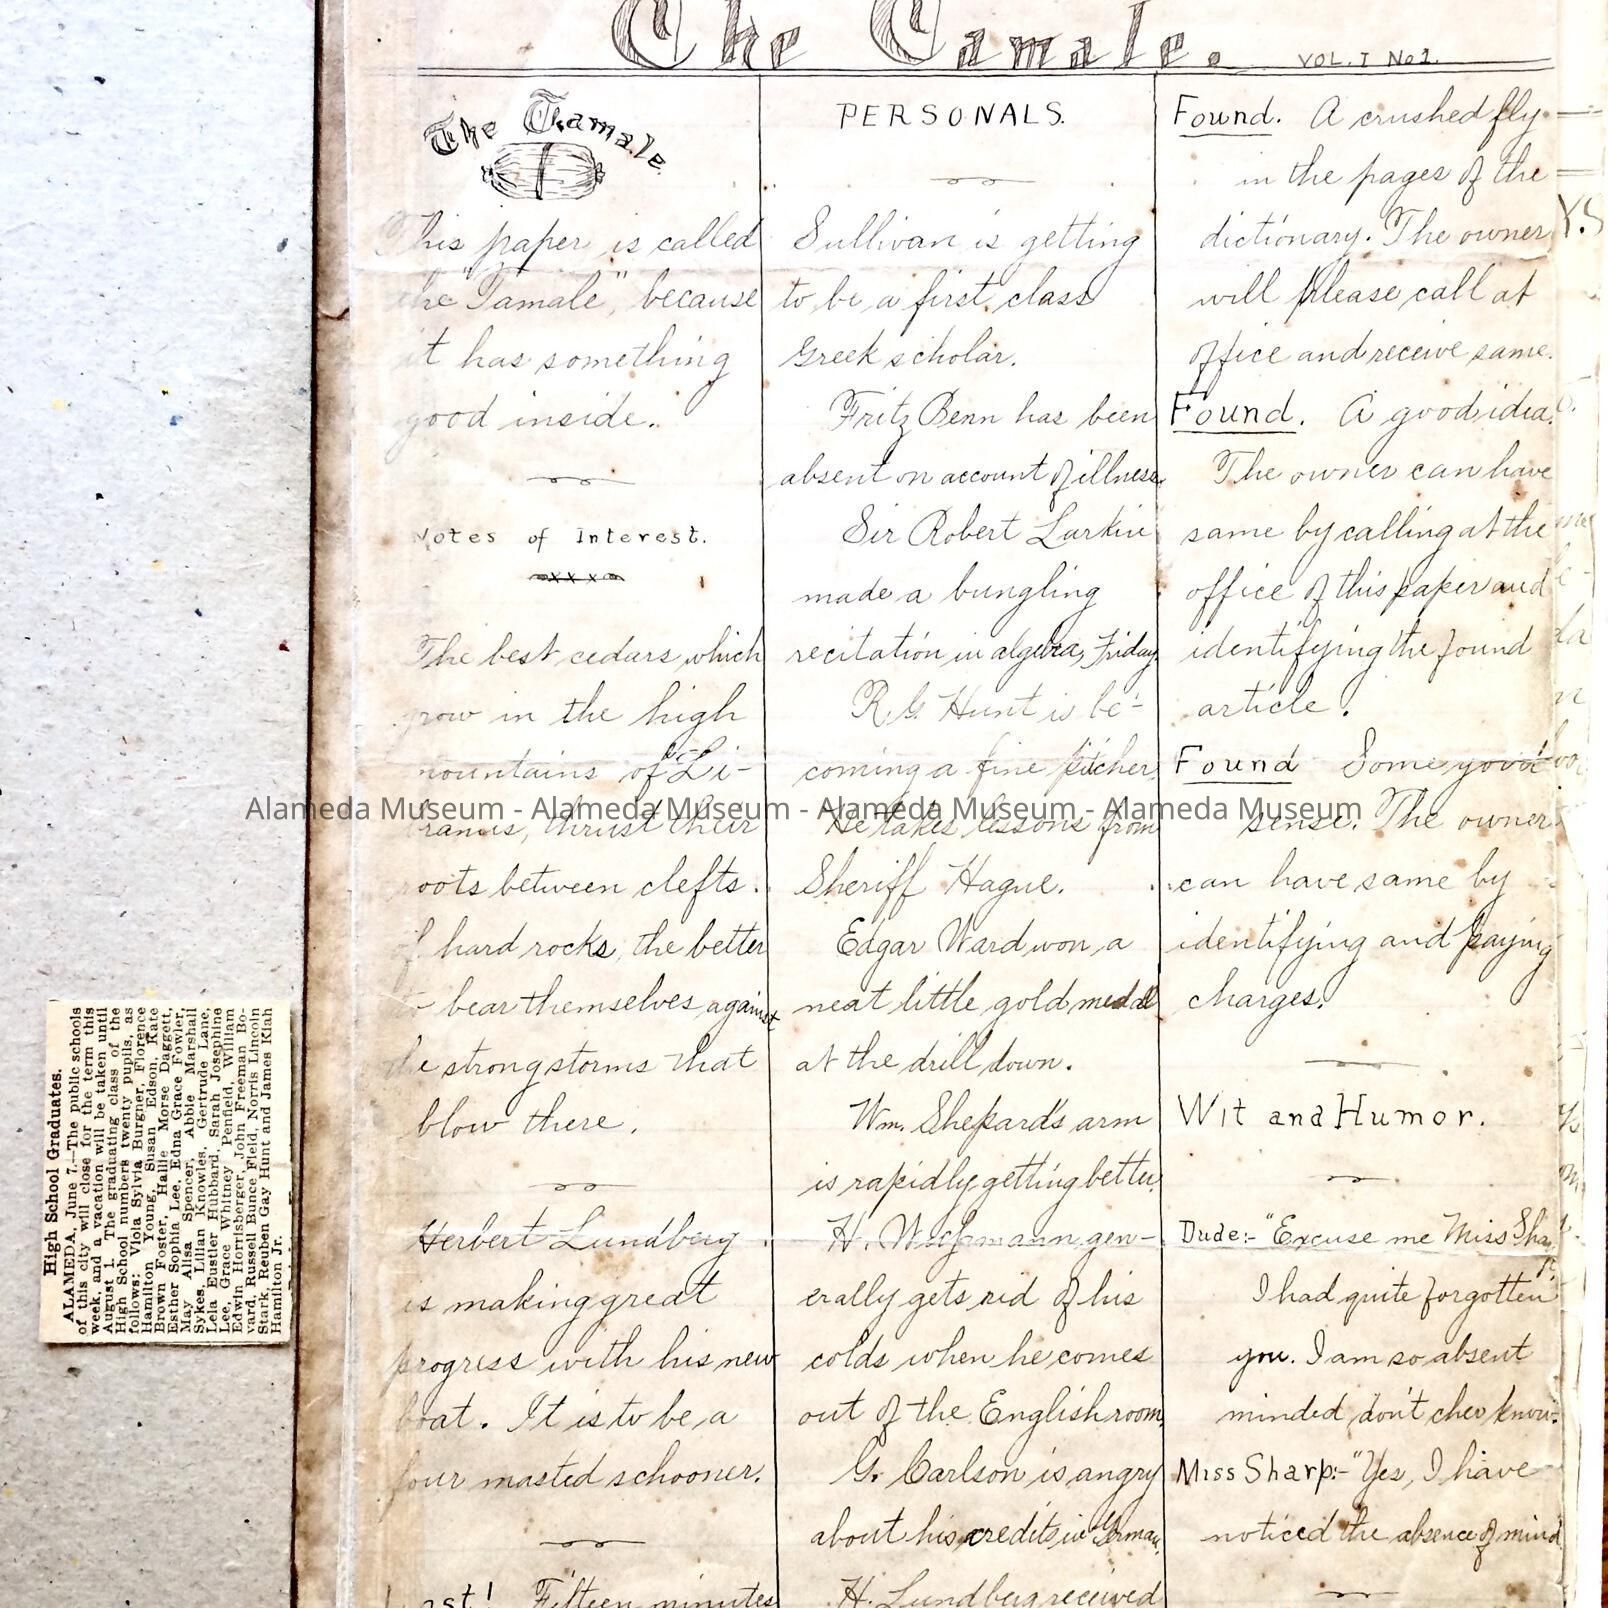 The Tamale. VOL. I No 1.
The Tamale
This paper is called
the "Tamale", because
it has something
good inside.
Notes of Interest.
The best cedars which
grow in the high
mountains of Li-
branus, thrust their
roots between clefts
of hard rocks, the better
to bear themselves against
the strong storms that
blow there.
Herbert Lundberg
is making great
progress with his new
boat. It is to be a
four masted schooner.
Lost! Fifteen minutes
PERSONALS.
Sullivan is getting
to be a first class
Greek scholar.
Fritz Benn has been
absent on account of illness.
Sir Robert Larkin
made a bungling
recitation in algebra, Friday
R.G. Hunt is be-
coming a fine pitcher.
He takes lessons from
Sheriff Hague.
Edgar Ward won a
neat little gold medal
at the drill down.
Wm. Shepard's arm
is rapidly getting better.
H. gen-
erally gets rid of his
colds when he comes
out of the English room.
G. Carlson is angry
about his credits in German.
H. Lundberg received
Found. A crushed fly
in the pages of the
dictionary. The owner
will please call at
office and receive same.
Found. A good idea.
The owner can have
same by calling at the
office of this paper and
identifying the found
article.
Found Some good
sense. The owner
can have same by
identifying and paying
charges.
Wit and Humor.
Dude:- "Excuse me Miss Sharp.
I had quite forgotten
you. I am so absent
minded don't cher know.
Miss Sharp:- "Yes, I have
noticed the absence of mind
Alameda Museum - Alameda Museum - Alameda Museum - Alameda Museum
High School Graduates.
ALAMEDA, June 7.—The public schools
of this city will close for the term this
week, and a vacation will be taken until
August 1. The graduating class of the
High School numbers twenty pupils, as
follows: Viola Sylvia Burgner, Florence
Hamilton Young, Susan Edson, Kate
Brown Foster, Hallie Morse Daggett,
Esther Sophia Lee, Edna Grace Fowler,
May Alisa Spencer, Abbie Marshall
Sykes, Lillian Knowles, Gertrude Lane,
Lela Eustler Hubbard, Sarah Josephine
Lee, Grace Whitney Penfield, William
Edwin Hornsberger, John Freeman Bo-
vard, Russell Bunce Field, Norris Lincoln
Stark, Reuben Gay Hunt and James Kiah
Hamilton Jr.